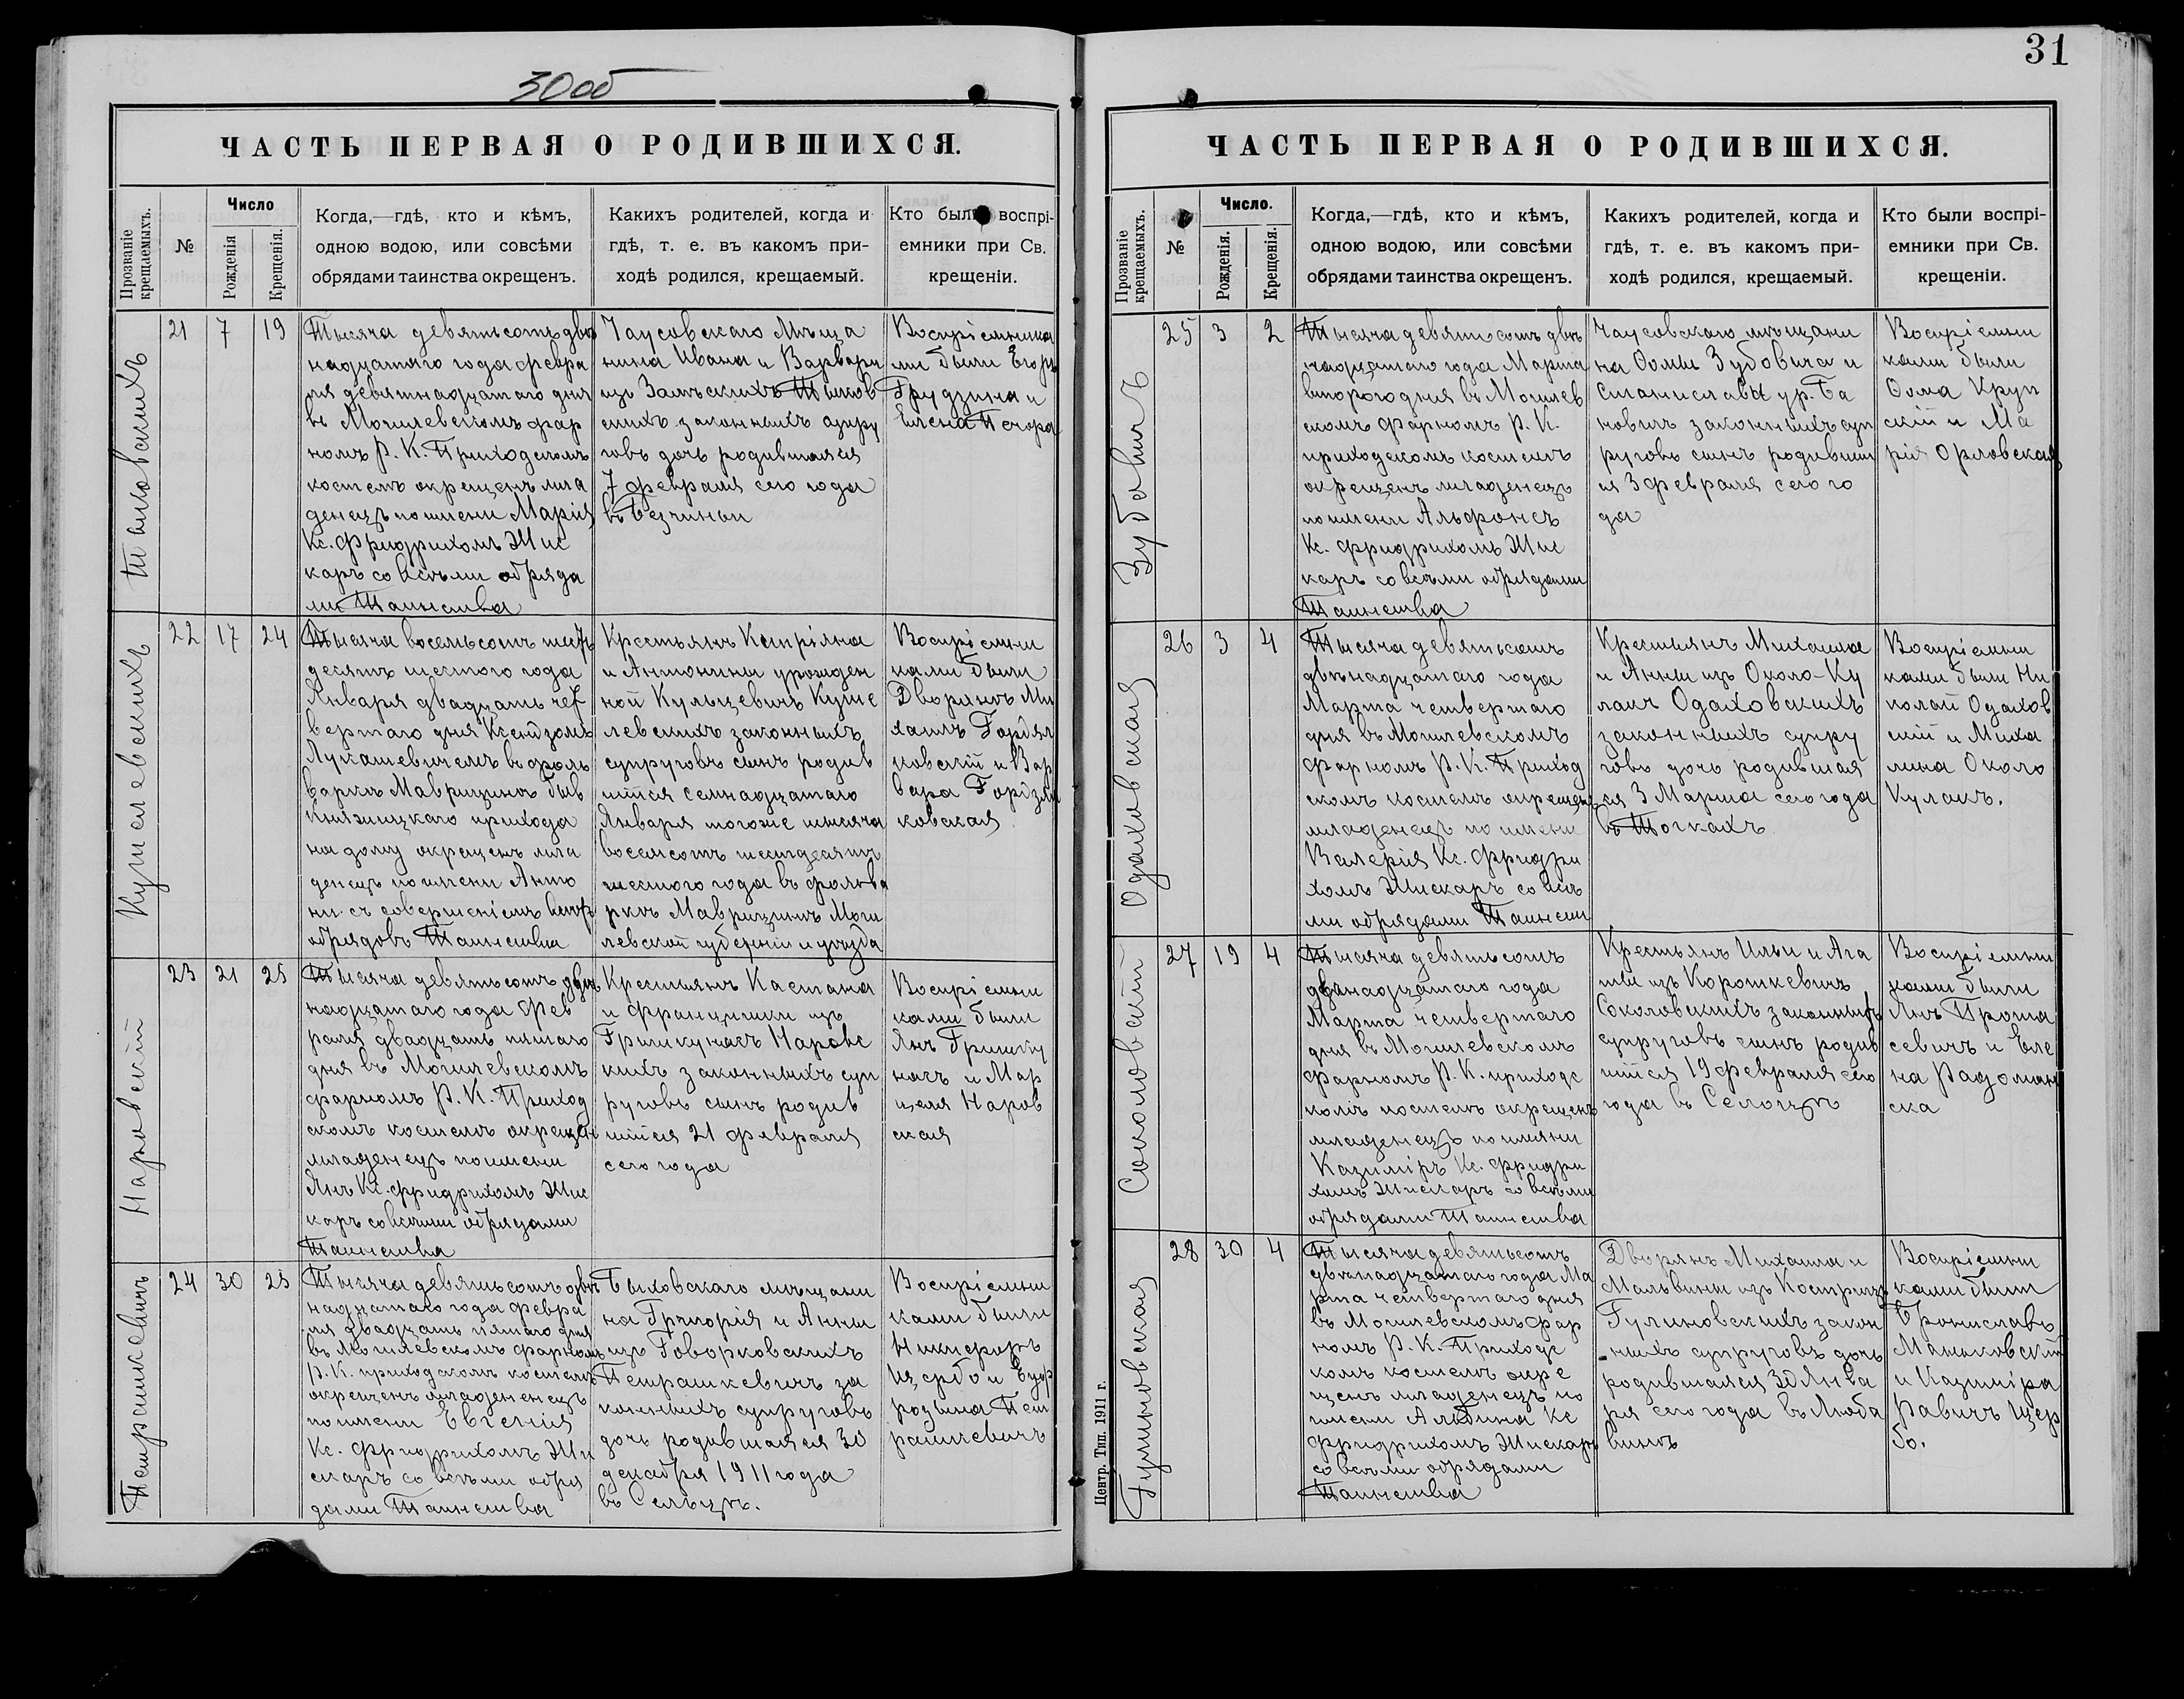 30 об
ЧАСТЬ ПЕРВАЯ О РОДИВШИХСЯ.
Прозваніе крещаемыхъ.
№
Число
Рожденія
Крещенія.
Когда,—гдѣ, кто и кѣмъ,
одною водою, или совсѣми
обрядами таинства окрещенъ.
Какихъ родителей, когда и
гдѣ, т. е. въ какомъ при-
ходѣ родился, крещаемый.
Кто были воспрі-
емники при Св.
крещеніи.
21 7 19
Тысяча девятьсотъ двѣ
надцатаго года февра
ля девятнадцатаго дня
въ Могилевскомъ фар
номъ Р. К. Приходскомъ
костелѣ окрещенъ мла
денецъ по имени Марія
Кс. Фридрихомъ Жис
каръ со всѣми обряда
ми Таинства
Чаусовскаго Мѣща
нина Ивана и Варвары
изъ Залѣскихъ
скихъ законныхъ супру
говъ дочь родившаяся
7 февраля сего года
въ Везчинки
Воспріемника
ми были Егоръ
Грудзина и
Елена
Кушелевскихъ
22 17 24
Тысяча восемьсотъ шест
десятъ шестого года
Января двадцать чет
вертаго дня Ксендзомъ
Лукашевичемъ въ фоль
варкѣ Маврицинъ быв
Княжицкаго прихода
на дому окрещенъ мла
денецъ по имени Анто
ни съ совершеніемъ всѣхъ
обрядовъ Таинства
Крестьянъ Кипріяна
и Антонины урожден
ной Кульцевичъ Куше
левскихъ законныхъ
супруговъ сынъ родив
шійся семнадцатаго
Января тогоже тысяча
восемсотъ шестдесятъ
шестого года въ фольва
ркѣ Маврицинъ Моги
левской губерніи и уѣзда
Воспріемни
ками были
Дворянъ Ми
хаилъ Гордзял
ковскій и Вар
вара Гордзял
ковская
Наровскій
23 21 25
Тысяча девятьсотъ двѣ
надцатаго года Фев
раля двадцать пятаго
дня въ Могилевскомъ
фарномъ Р. К. Приход
скомъ костелѣ окрещен
младенецъ по имени
Янъ Кс. Фридрихомъ Жис
каръ со всѣми обрядами
Таинства
Крестьянъ Кастана
и Францишки изъ
Гришкунасъ Наровс
кихъ законныхъ суп
руговъ сынъ родив
шійся 21 февраля
сего года
Воспріемни
ками были
Янъ Гришку
насъ и Мар
целя Наров
ская
Петрашкевичъ
24 30 25
Тысяча девятьсотъ двѣ
надцатаго года февра
ля двадцать пятаго дня
въ Могилевскомъ фарномъ
Р. К. приходскомъ костелѣ
окрещенъ младененецъ
по имени Евгенія
Кс. Фридрихомъ Жи
скаръ со всѣми обря
дами Таинства
Быховскаго мѣщани
на Григорія и Анны
изъ Говорковскихъ
Петрашкевичъ за
конныхъ супруговъ
дочь родившаяся 30
декабря 1911 года
въ Сельцѣ.
Воспріемни
ками были
Никифоръ
Щербо и Ефр
розина Пет
рашкевичъ
31
ЧАСТЬ ПЕРВАЯ О РОДИВШИХСЯ.
Прозваніе крещаемыхъ.
№
Число.
Рожденія.
Крещенія.
Когда,—гдѣ, кто и кѣмъ,
одною водою, или совсѣми
обрядами таинства окрещенъ.
Какихъ родителей, когда и
гдѣ, т. е. въ какомъ при-
ходѣ родился, крещаемый.
Кто были воспрі-
емники при Св.
крещеніи.
Зубовичъ
25 3 2
Тысяча девятьсотъ двѣ
надцатаго года Марта
второго дня въ Могилев
скомъ фарномъ Р. К.
приходскомъ костелѣ
окрещенъ младенецъ
по имени Альфонсъ
Кс. Фридрихомъ Жис
каръ со всѣми обрядами
Таинства
Чаусовскаго мѣщани
на Ѳомы Зубовича и
Станиславы ур. Ба
новичъ законныхъ суп
руговъ сынъ родивши
ся 3 февраля сего го
да
Воспріемни
ками были
Ѳома Круп
скій и Ма
рія Орловская
Одаховская
26 3 4
Тысяча девятьсотъ
двѣнадцатаго года
Марта четвертаго
дня въ Могилевскомъ
Фарномъ Р. К. Приход
скомъ костелѣ окрещенъ
младенецъ по имени
Валерія Кс. Фридри
хомъ Жискаръ со всѣ
ми обрядами Таинств
Крестьянъ Михаила
и Анны изъ Около-Ку
лакъ Одаховскихъ
законныхъ супру
говъ дочь родившая
ся 3 Марта сего года
въ Точкахъ
Воспріемни
ками были Ни
колай Одахов
скій и Миха
лина Около
Кулакъ.
Соколовскій
27 19 4
Тысяча девятьсотъ
двѣнадцатаго года
Марта четвертаго
дня въ Могилевскомъ
Фарномъ Р. К. приходс
комъ костелѣ окрещенъ
младенецъ по имяни
Казиміръ Кс. Фридри
хомъ Жискаръ со всѣми
обрядами Таинства
Крестьянъ Ильи и Ага
ты изъ Короткевичъ
Соколовскихъ законныхъ
супруговъ сынъ родив
шійся 19 февраля сего
года въ Селощѣ
Воспріемни
ками были
Янъ Прота
севичъ и Еле
на Радоман
ска
Гулиновская
28 30 4
Тысяча девятьсотъ
двѣнадцатаго года Ма
рта четвертаго дня
въ Могилевскомъ фар
номъ Р. К. Приходс
комъ костелѣ окре
щенъ младенецъ по
имени Альбина Кс
Фридрихомъ Жискаръ
со всѣми обрядами
Таинства
Дворянъ Михаила и
Мальвины изъ Костриц
Гулиновскихъ закон
ныхъ супруговъ дочь
родившаяся 30 Янва
ря сего года въ Люба
винѣ
Воспріемни
ками были
Брониславъ
Маньковскій
и Казиміра
Равичъ Щер
бо.
Центр. Тип. 1911 г.